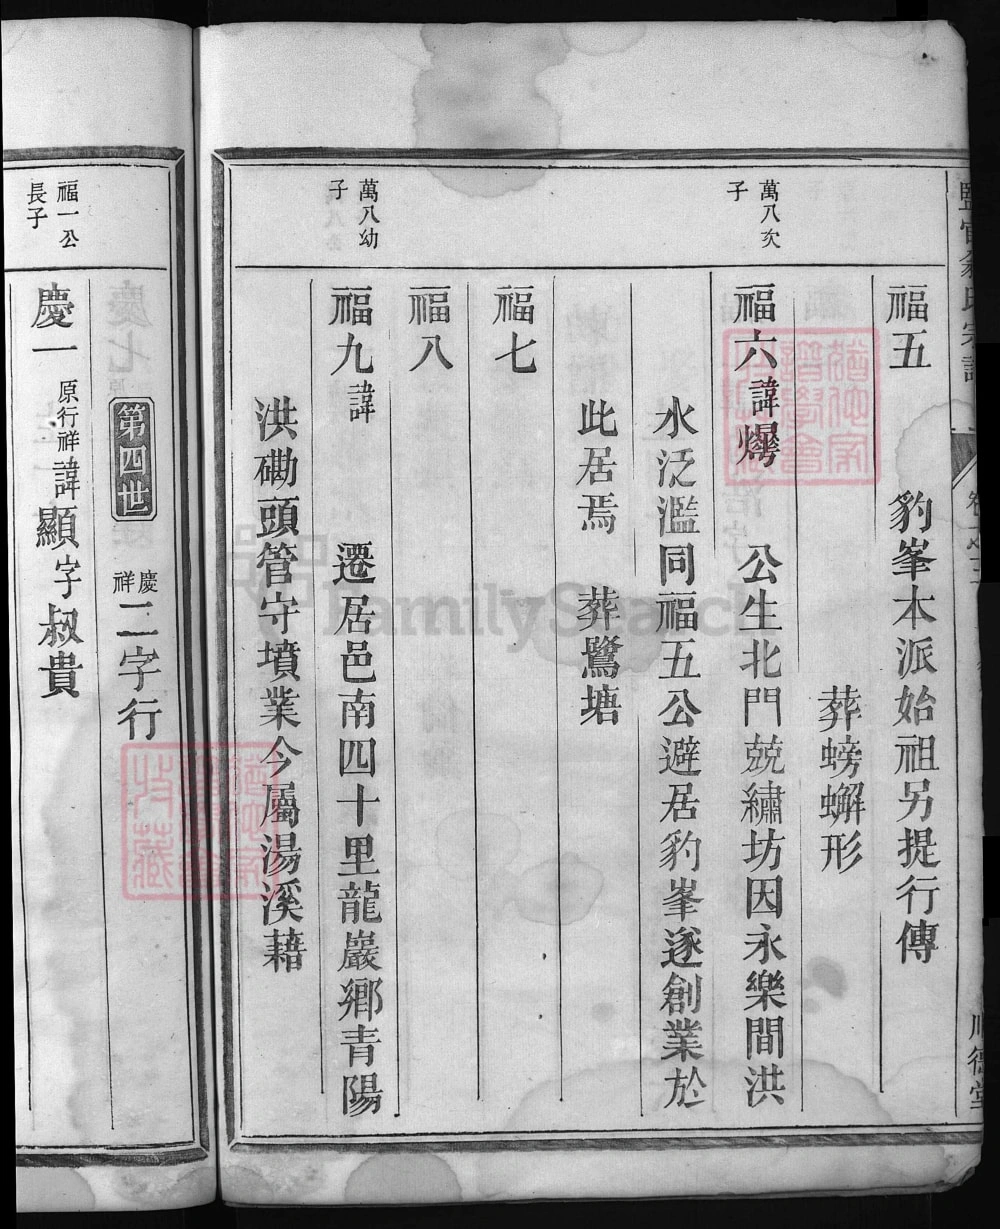 福五
豹峯本派始祖另提行傳
葬螃蠏形
萬八次
子
福六諱爗
公生北門兢繡坊因永樂間洪
水泛濫同福五公避居豹峯遂創業於
此居焉 葬鷺塘
福七
福八
萬八幼
子
福九諱
遷居邑南四十里龍巖鄉青陽
洪磡頭管守墳業今屬湯溪藉
第四世 慶祥二字行
福一公
長子
慶一 原行祥 諱顯字叔貴
FamilySearch